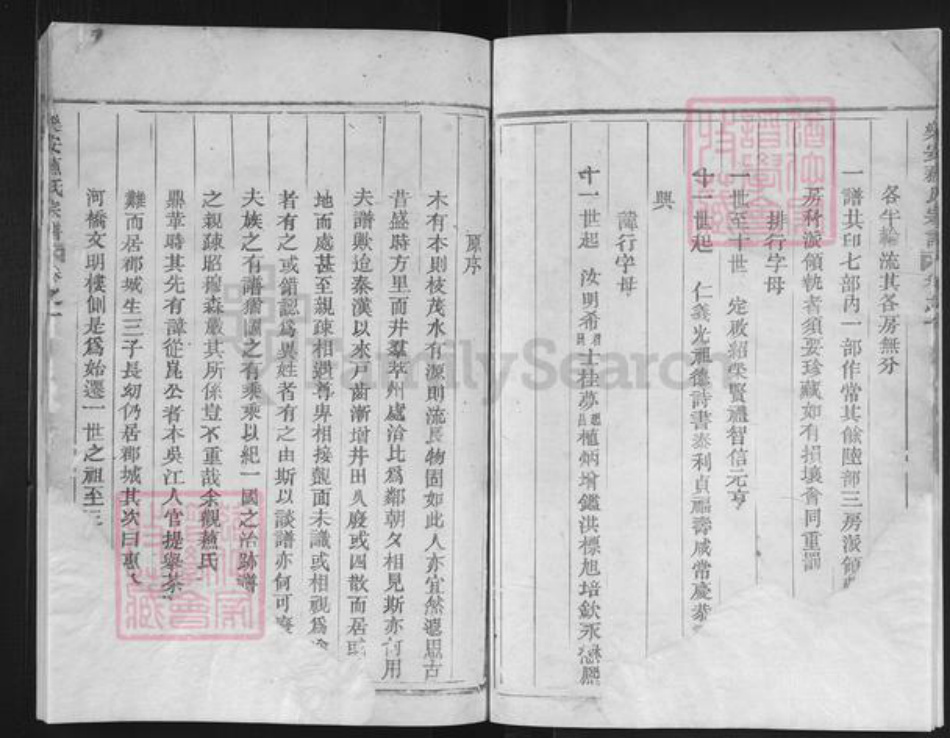 各牛輪流其各房無分
一譜共印七部內一部作常其餘陸部三房派領
房利派領執者須要珍藏如有損壞會同重罰
排行字母
一世至十世 定啟紹榮賢禮智信元亨
十一世起 仁義光祖德詩書泰利貞福壽咸常慶恭
興
諱行字母
十一世起 汝明希士桂夢植炳增鑑洪標旭培欽承
原序
木有本則枝茂水有源則流長物固如此人亦宜然遡思古
昔盛時方里而井羣萃州處洽比為鄰朝夕相見斯亦何用
夫譜歟迨秦漢以來戶萿漸增井田久廢或四散而居或
地而處甚至親疎相遇尊卑相接覿面未識或相視為
者有之或錯認為異姓者有之由斯以談譜亦何可廢
夫族之有譜猶國之有乘乘以紀一國之治跡譜
之親疎昭穆森嚴其所係豈不重哉余觀蔬氏
鼎革時其先有諱從崑公者本吳江人官提舉茶
難而居郡城生三子長幼仍居郡城其次曰惠
河橋文明樓側是為始遷一世之祖至三
FamilySearch